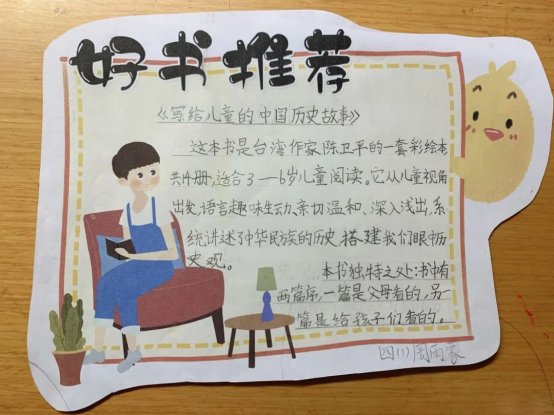 好书推荐
《写给儿童的中国历史故事》
这本书是台湾作家陈卫平的一套彩绘本
共14册,适合3—6岁儿童阅读。它从儿童视角
出发,语言趣味生动、亲切温和、深入浅出,系
统讲述了中华民族的历史,搭建我们眼中历
史观。
本书独特之处:书中有
两篇序,一篇是父母看的,另一
篇是给孩子们看的。
四(1)周雨